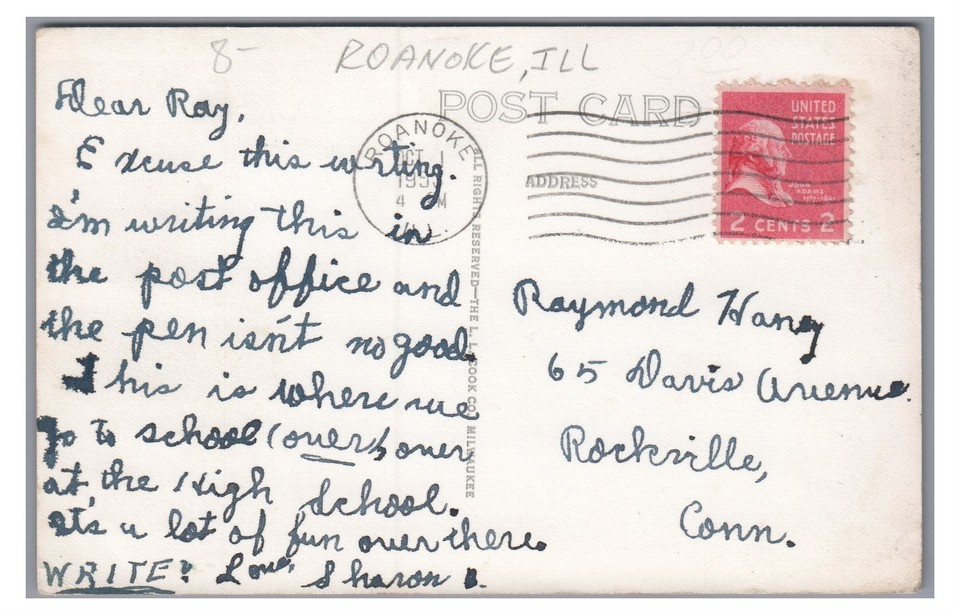 8-
ROANOKE, ILL
POST CARD
ADDRESS
ROANOKE
OCT 1
4 PM
UNITED
STATES
POSTAGE
JOHN
ADAMS
2 CENTS 2
ALL RIGHTS RESERVED—THE L. L. COOK CO., MILWAUKEE
Dear Ray,
Excuse this writing.
I'm writing this in
the post office and
the pen isn't no good.
This is where we
go to school (over) over
at the High School.
It's a lot of fun over there.
WRITE! Love, Sharon B.
Raymond Haney
65 Davis Avenue.
Rockville,
Conn.